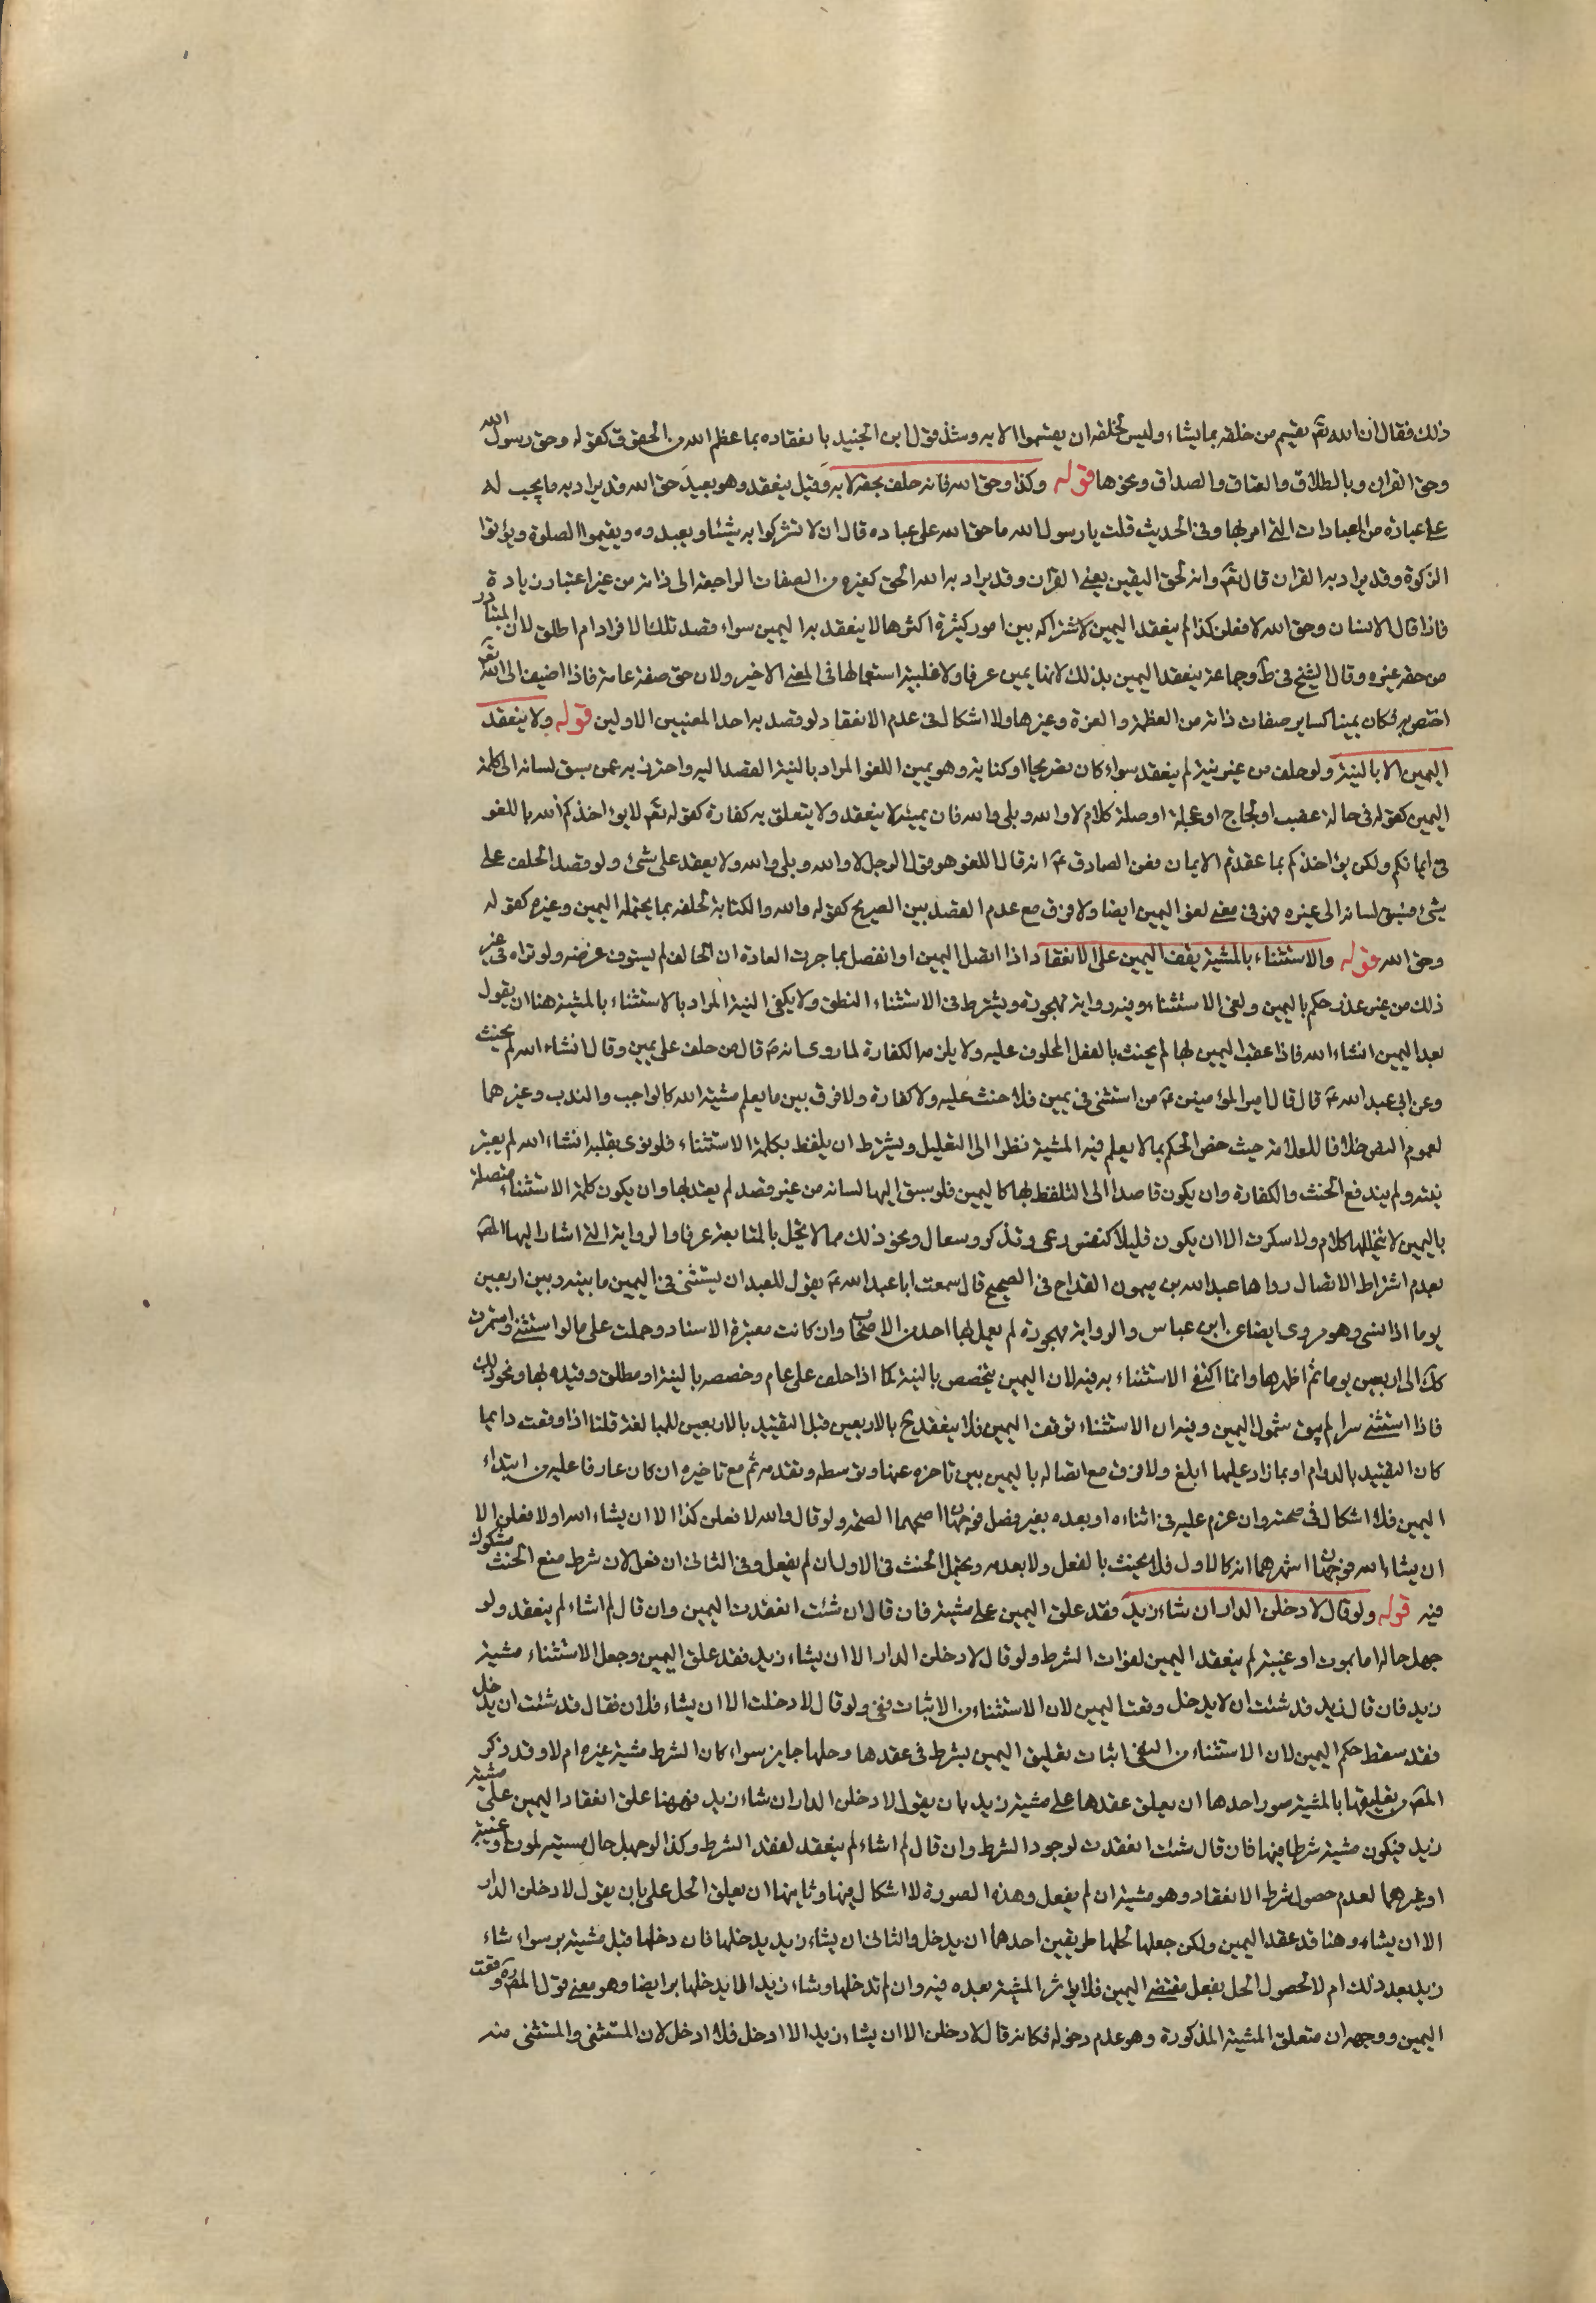 ذلك فقال ان الله تعّ يقسم من خلقه بما يشاء وليس لخلقه ان يقسموا الا به ومثله قول ابن الجنيد بانعقاده بما عظم الله من الحقوق كقوله وحق رسول الله
وحق القران وبالطلاق والعتاق والصداق ونحوها قوله وكذا وحق الله فانه حلف بحقه لا به وقيل ينعقد وهو بعيد حق الله قد يراد به ما يجب له
على عباده من العبادات التي امر بها وفي الحديث قلت يا رسول الله ما حق الله على عباده قال ان لا تشركوا به شيئا ويعبدوه ويقيموا الصلوة ويؤتوا
الزكوة وقد يراد به القران قال تعّ وانه لحق اليقين يعني القرآن وقد يراد به الله الحق كغيره من الصفات الراجعة الى ذاته من غير اعتبار زيادة
فاذا قال الانسان وحق الله لافعلن كذا لم ينعقد اليمين لاشتراكه بين امور كثيرة اكثرها لا ينعقد به اليمين سواء قصد تلك الافراد ام اطلق لان المتبادر
من حقه غيره وقال الشيخ في ط وجماعة ينعقد اليمين بذلك لانها يمين عرفا ولاغلبية استعمالها في المعنى الاخير ولان حق صفة عامة فاذا اضيف الى الله تعّ
اختص به فكان يمينا كساير صفات ذاته من العظمة والعزة وغيرها ولا اشكال في عدم الانعقاد لو قصد به احد المعنيين الاولين قوله ولا ينعقد
اليمين الا بالنية ولو حلف من غير نية لم ينعقد سواء كان بصريحا او كناية وهو يمين اللغو المراد بالنية القصد اليه واحترز به عمن سبق لسانه الى كلمة
اليمين كقوله في حالة غضب او لجاج او عجلة او صلة كلام لا والله وبلى والله فان يمينه لا ينعقد ولا يتعلق به كفارة كقوله تعّ لا يؤاخذكم الله باللغو
في ايمانكم ولكن يؤاخذكم بما عقدتم الايمان وعن الصادق عّ انه قال اللغو هو قول الرجل لا والله وبلى والله ولا يعقد على شئ ولو قصد الحلف على
شئ فسبق لسانه الى غيره فهو في معنى لغو اليمين ايضا ولا فرق مع عدم القصد بين الصريح كقوله والله والكناية لحلفه بما يحتمله اليمين وغيره كقوله
وحق الله قوله والاستثناء بالمشية يقف اليمين على الانعقاد اذا اتصل اليمين او انفصل بما جرت العادة ان الحالف لم يستوف غرضه ولو تراه في غير
ذلك من غير عذر حكم باليمين ولغى الاستثناء وفيه رواية مهجورة ويشترط في الاستثناء النطق ولا يكفي النية المراد بالاستثناء بالمشية هنا ان يقول
بعد اليمين انشاء الله فاذا عقب اليمين بها لم يحنث بالفعل المحلوف عليه ولا يلزمه الكفارة لما روى انه ص قال من حلف على يمين وقال انشاء الله لم يحنث
وعن ابي عبد الله عّ قال قال امير المؤمنين عّ من استثنى في يمين فلا حنث عليه ولا كفارة ولا فرق بين ما يعلم مشية الله كالواجب والندب وغيرهما
لعموم النص خلافا للعلامة حيث خص الحكم بما لا يعلم فيه المشية نظرا الى التعليل ويشترط ان يلفظ بكلمة الاستثناء فلو نوى بقلبه انشاء الله لم يعتبر
نيته ولم يندفع الحنث والكفارة وان يكون قاصدا الى التلفظ بها كاليمين فلو سبق اليها لسانه من غير قصد لم يعتد بها وان يكون كلمة الاستثناء متصلة
باليمين لا يتخللها كلام ولا سكوت الا ان يكون قليلا كنفس وعي وتذكر وسعال ونحو ذلك مما لا يخل بالمتابعة عرفا والرواية التي اشار اليها المصّ
بعدم اشتراط الاتصال رواها عبد الله بن ميمون القداح في الصحيح قال سمعت ابا عبد الله عّ يقول للعبد ان يستثني في اليمين ما بينه وبين اربعين
يوما اذا نسي وهو مروى ايضا عن ابن عباس والرواية مهجورة لم يعمل بها احد من الاصحاب وان كانت معتبرة الاسناد وحملت على ما لو استثنى واستمرت
كك الى اربعين يوما ثم اظهرها وانما اكتفى الاستثناء به فيه لان اليمين يتخصص بالنية كما اذا حلف على عام وخصصه بالنية او مطلق وقيده بها ونحو ذلك
فاذا استثنى سرا لم يبق شمول اليمين وفيه ان الاستثناء توقف اليمين فلا ينعقد ح بالاربعين قبل التقييد بالاربعين للمبالغة قلنا اذا وقعت دايما
كان التقييد بالدوام او بما زاد عليها ابلغ ولا فرق مع اتصاله باليمين بين تاخره عنها وتوسطه وتقدمه ثم مع تاخيره ان كان عارفا عليه من ابتداء
اليمين فلا اشكال في صحته وان عزم عليه في اثناءه او بعده بغير فصل فوجهان اصحهما الصحة ولو قال والله لافعلن كذا الا ان يشاء الله او لا فعلن الا
ان يشاء الله فوجهان اشهرهما انه كالاول فلا يحنث بالفعل ولا بعدمه ويحتمل الحنث في الاول ان لم يفعل وفي الثاني ان فعل لان شرط منع الحنث مشكوك
فيه قوله ولو قال لادخلن الدار ان شاء زيد فقد علق اليمين على مشيته فان قال ان شئت انعقدت اليمين وان قال لم اشاء لم ينعقد ولو
جهل حاله اما بموت او غيبة لم ينعقد اليمين لفوات الشرط ولو قال لادخلن الدار الا ان يشاء زيد فقد علق اليمين وجعل الاستثناء مشية
زيد فان قال زيد قد شئت ان لا يدخل وقعت اليمين لان الاستثناء من الاثبات نفي ولو قال لا دخلت الا ان يشاء فلان فقال قد شئت ان يدخل
فقد سقط حكم اليمين لان الاستثناء من النفي اثبات تعليق اليمين بشرط في عقدها وحلها جايز سواء كان الشرط مشية غيره ام لا وقد ذكر
المصّ بتعليقها بالمشية صور احدها ان يعلق عقدها على مشية زيد بان يقول لادخلن الدار ان شاء زيد فههنا علق انعقاد اليمين على مشية
زيد فيكون مشيته شرطا فيها فان قال شئت انعقدت لوجود الشرط وان قال لم اشاء لم ينعقد لفقد الشرط وكذا لو جهل حال مشيته لموت او غيبة
او غيرهما لعدم حصول شرط الانعقاد وهو مشيته ان لم يفعل وهذه الصورة لا اشكال فيها وثانيها ان يعلق الحل على بان يقول لادخلن الدار
الا ان يشاء وهنا قد عقد اليمين ولكن جعل لحلها طريقين احدهما ان يدخل والثاني ان يشاء زيد يدخلها فان دخلها قبل مشيته بر سواء شاء
زيد بعد ذلك ام لا لحصول الحل بفعل مقتضى اليمين فلا يؤثر المشية بعده فيه وان لم تدخلها وشاء زيد الا يدخلها بر ايضا وهو معنى قول المصّ وقعت
اليمين ووجهه ان متعلق المشية المذكورة وهو عدم دخوله فكانه قال لادخلن الا ان يشاء زيد الا ادخل فلا ادخل لان المستثنى والمستثنى منه